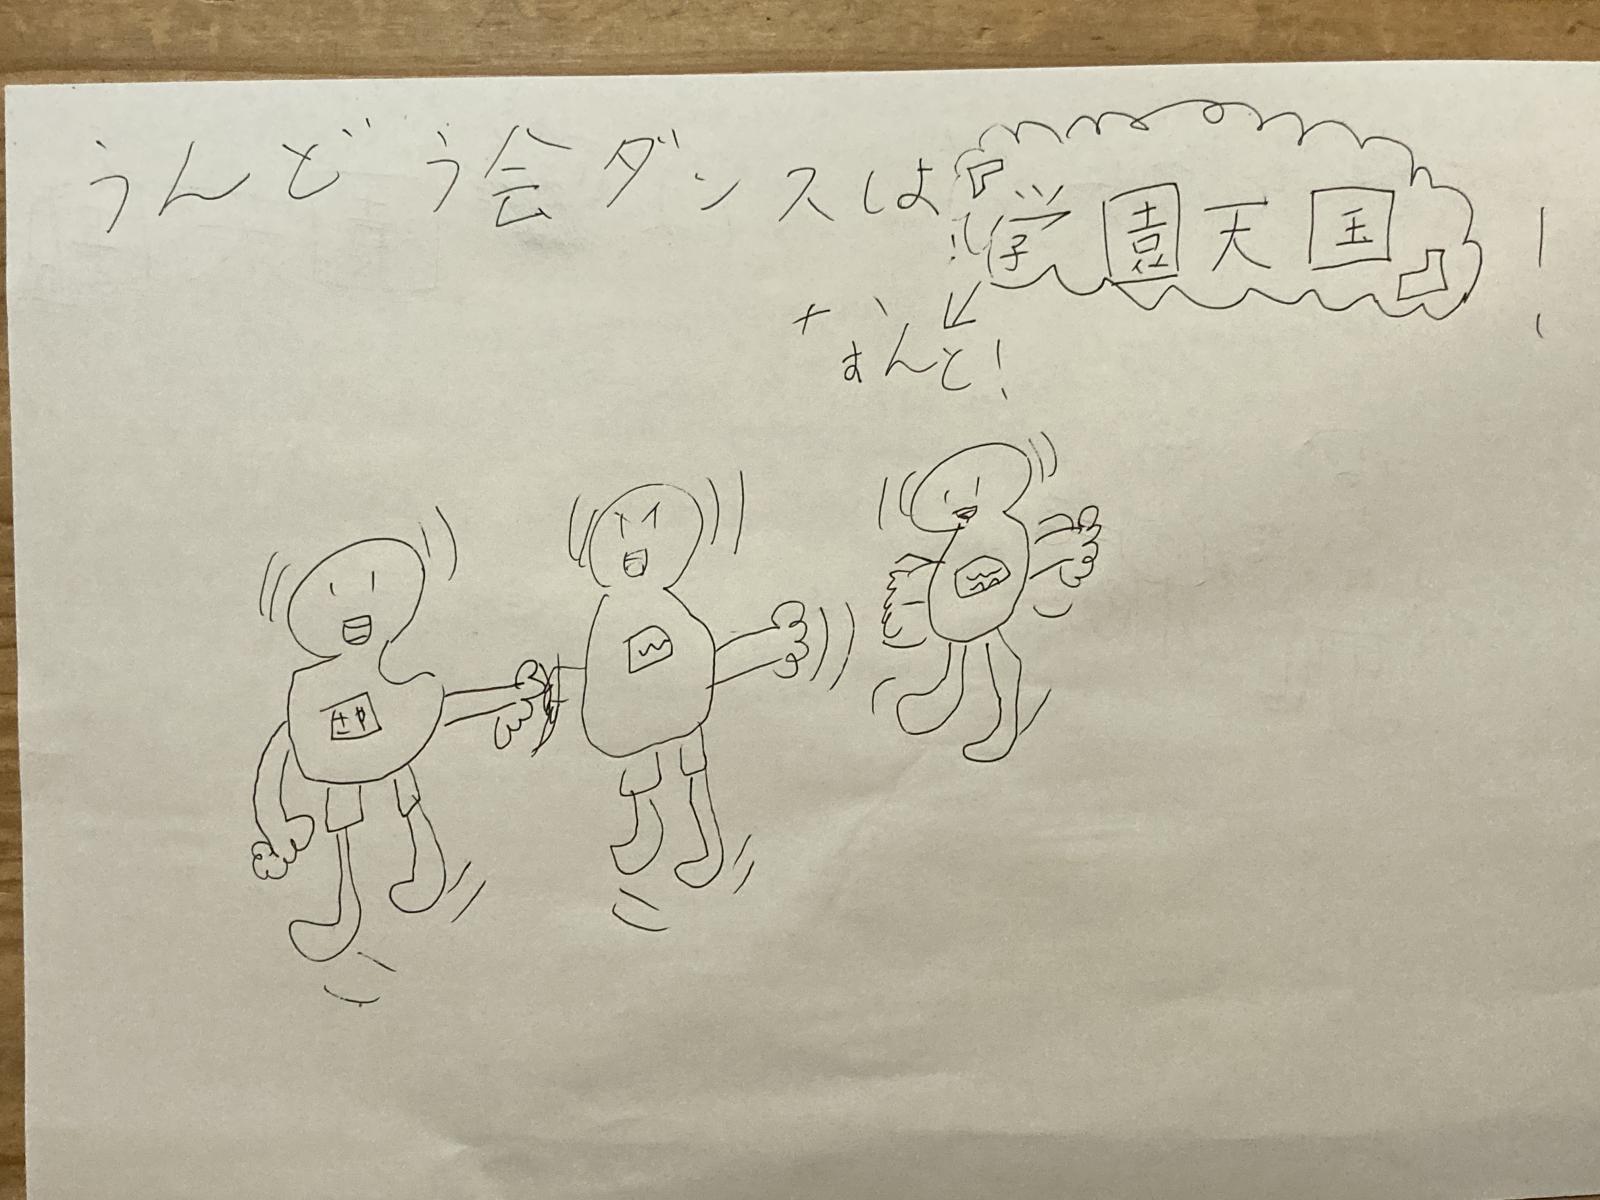 うんどう会ダンスは学園天国!
なんと!